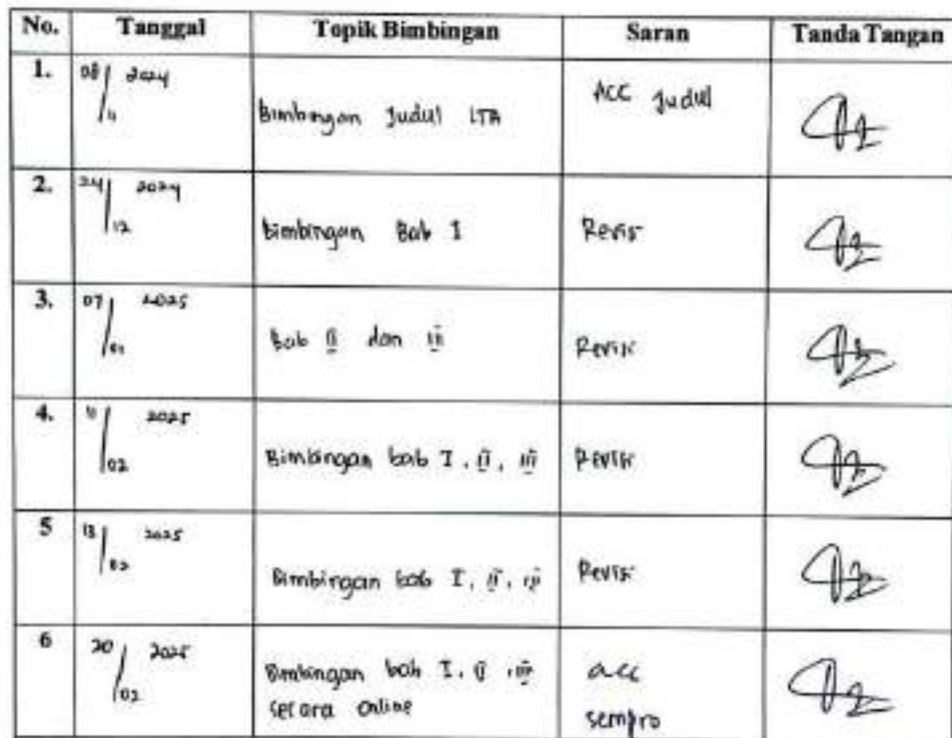 No. Tanggal Topik Bimbingan Saran Tanda Tangan
1. 08/11 2024 Bimbingan Judul LTA ACC Judul
2. 24/12 2024 Bimbingan Bab I Revisi
3. 07/01 2025 Bab II dan III Revisi
4. 11/02 2025 Bimbingan bab I, II, III Revisi
5 13/02 2025 Bimbingan bab I, II, III Revisi
6 20/02 2025 Bimbingan bab I, II, III acc
secara online sempro